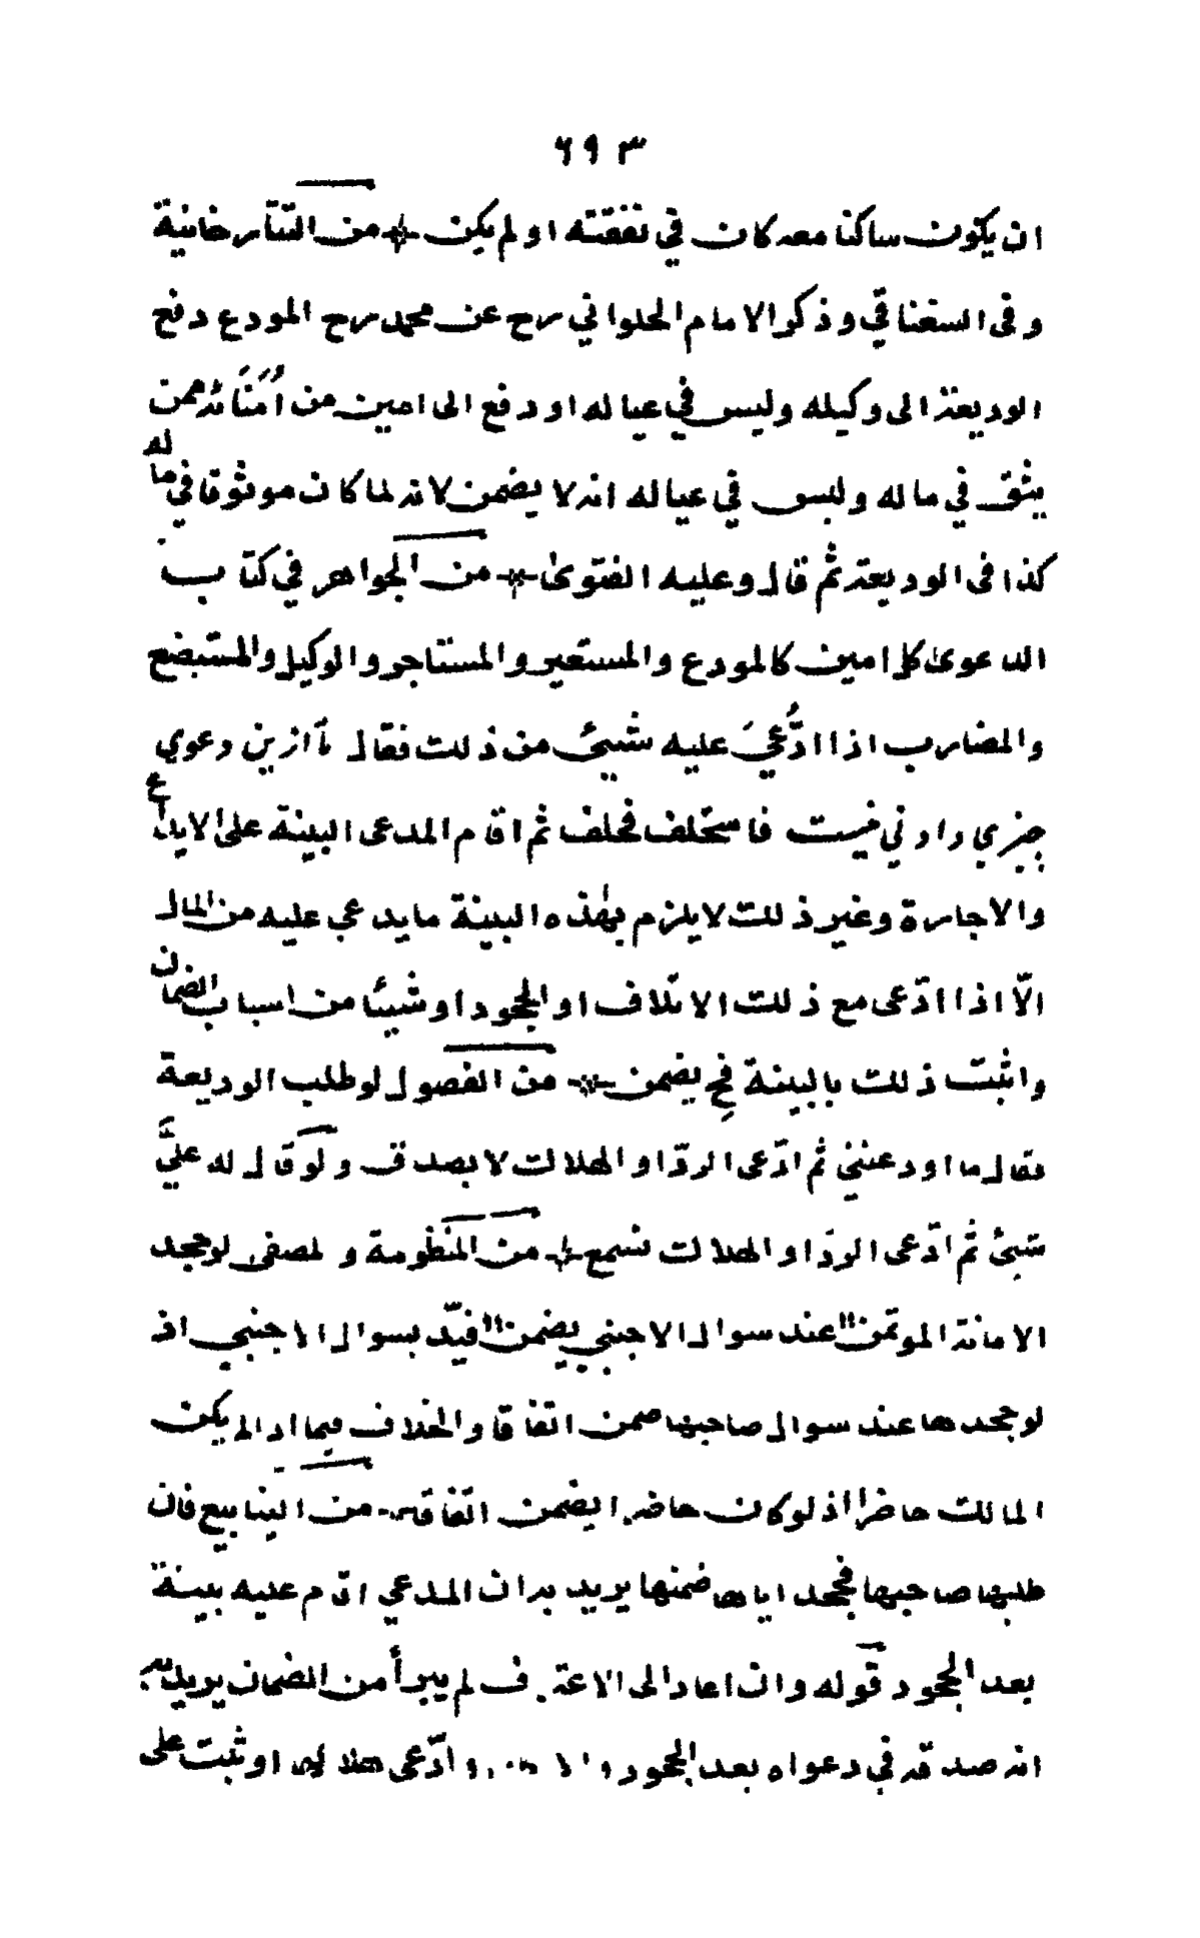 ٦٩٣
ان يكون ساكنا معه كان في نفقته او لم يكن * من التتارخانية
وفى السغناقي وذكر الامام الحلواني رح عن محمد رح المودع دفع
الوديعة الى وكيله وليس في عياله او دفع الى امين من اُمَنَائه ممن
يثق في ماله وليس في عياله انه لا يضمن لانه لما كان موثوقا في ماله
كذا فى الوديعة ثم قال وعليه الفتوى * من الجواهر في كتاب
الدعوى كل امين كالمودع والمستعير والمستاجر والوكيل والمستبضع
والمضارب اذا ادُّعيَ عليه شيئ من ذلك فقال مآ ازين دعوي
چيزي دادني نيست فاستحلف فحلف ثم اقام المدعى البينة على الايداع
والاجارة وغير ذلك لا يلزم بهذه البينة ما يدعي عليه من المال
الّا اذا ادّعى مع ذلك الاتلاف او الجحود او شيئا من اسباب الضمان
واثبت ذلك بالبينة فح يضمن * من الفصول لو طلب الوديعة
فقال ما اودعتني ثم ادّعى الردّ او الهلاك لا يصدق ولو قال له عليَّ
شيئ ثم ادّعى الردّ او الهلاك تسمع * من المنظومة والمصفى لو جحد
الامانة الموتمن " عند سوال الاجنبي يضمن " قيّد بسوال الاجنبي اذ
لو جحدها عند سوال صاحبها ضمن اتفاقا والخلاف فيما اذا لم يكن
المالك حاضرا اذ لو كان حاضرا يضمن اتفاقا * من الينابيع فان
طلبها صاحبها فجحد اياها ضمنها يريد به ان المدعي اقام عليه بينة
بعد الجحود قوله وان اعاد الى الاعتراف لم يبرأ من الضمان يريد به
انه صدقه في دعواه بعد الجحود وادّعى هلاكها او ثبت على